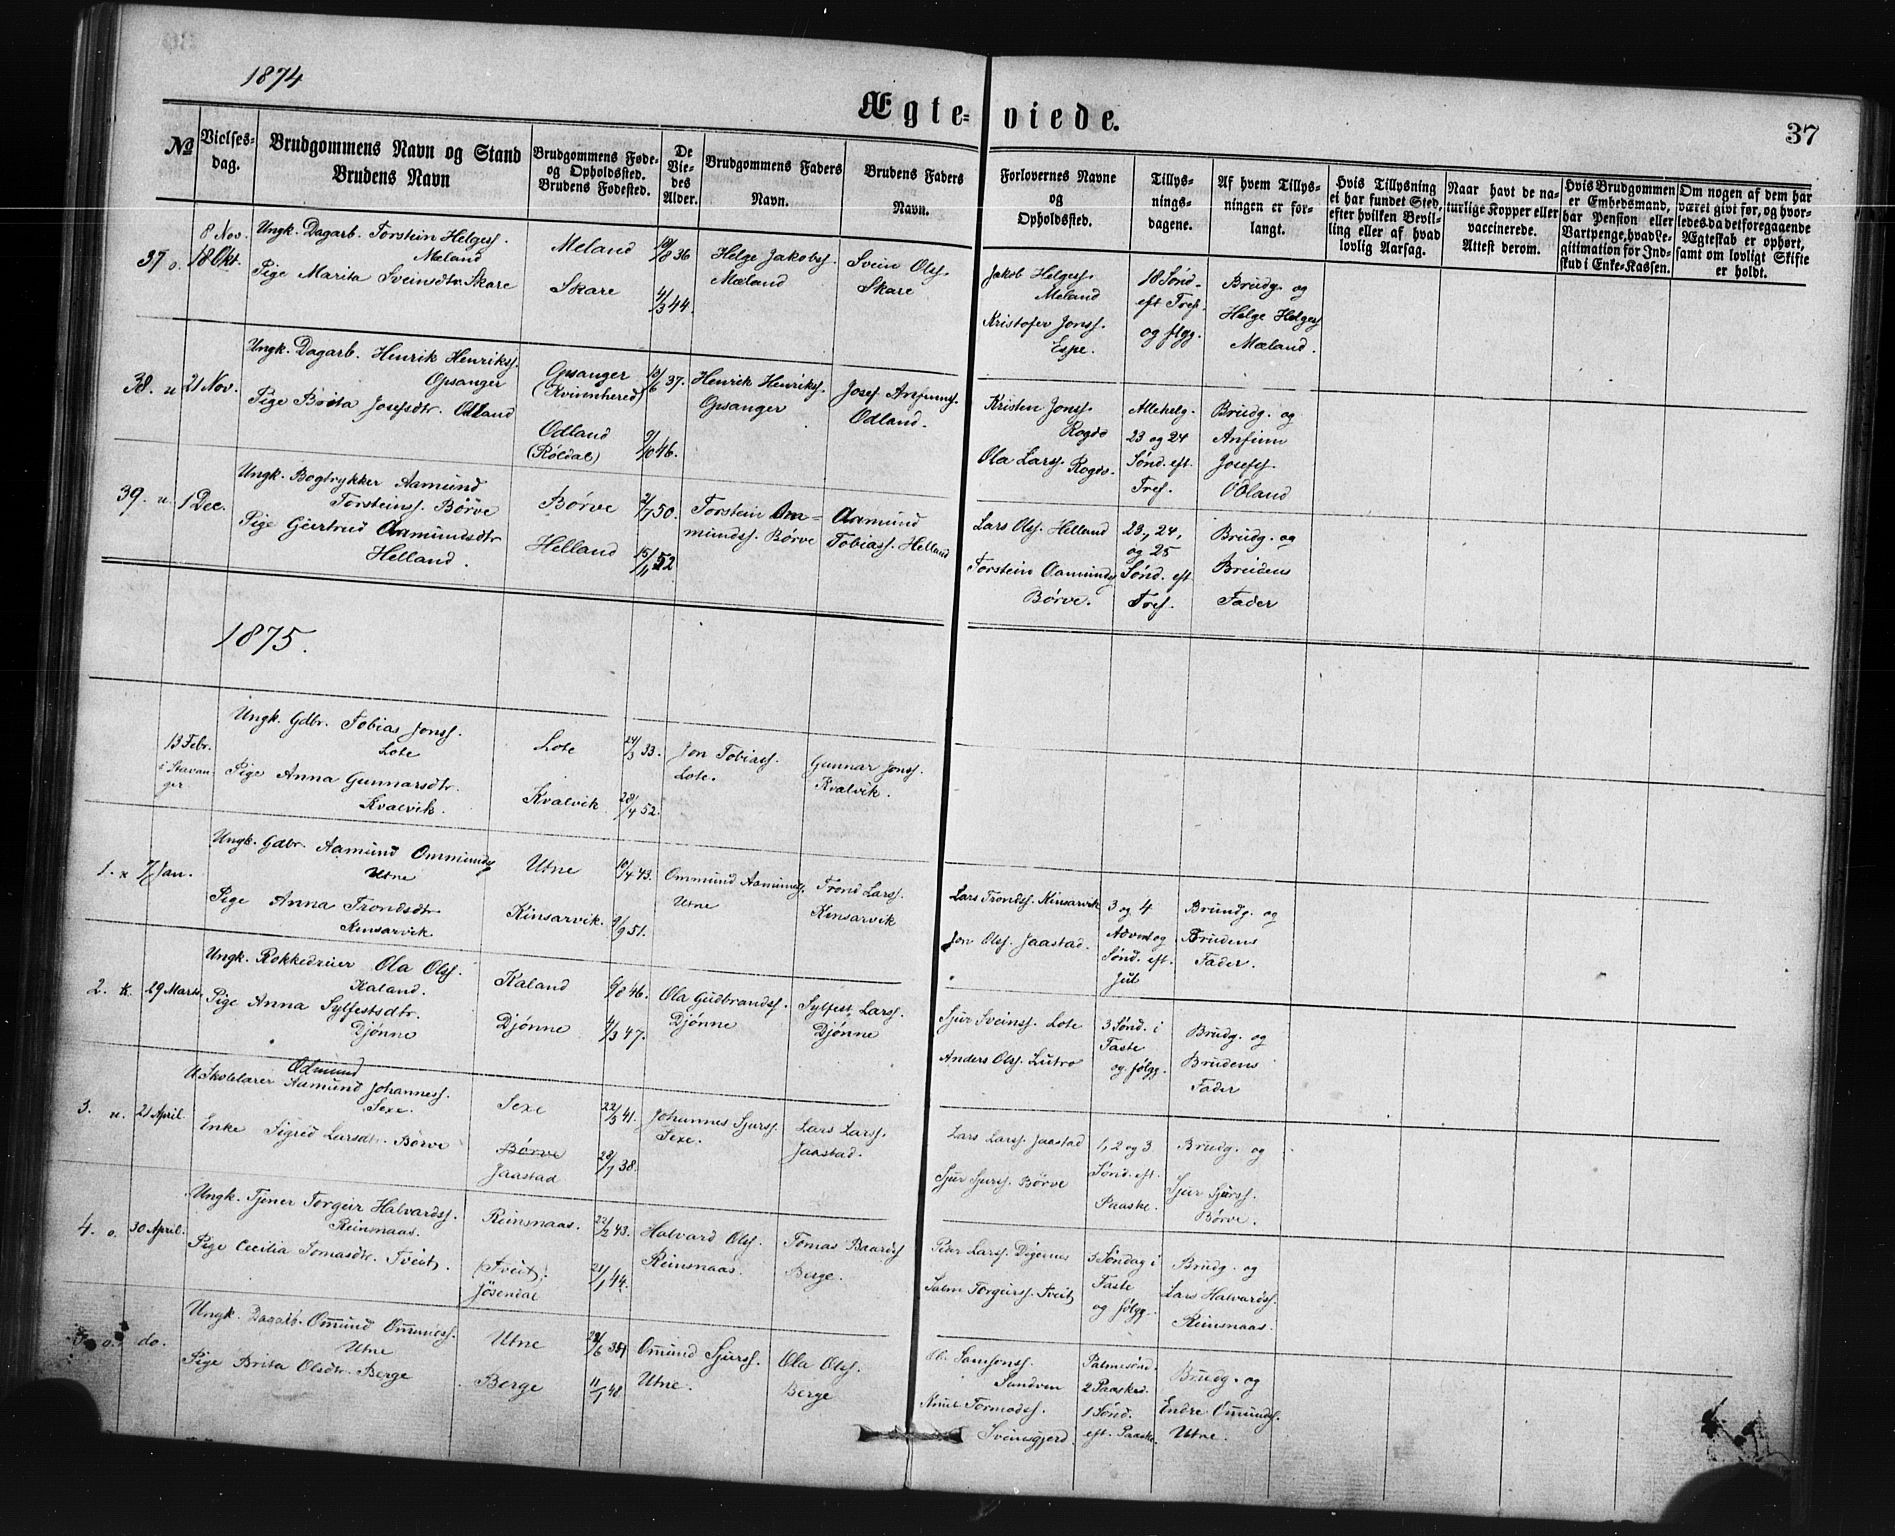 1874
Ægte- viede.
37
№
Vielses-
dag.
Brudgommens Navn og Stand
Brudens Navn
Brudgommens Føde-
og Opholdssted.
Brudens Fødested.
De
Vie-
des
Alder.
Brudgommens Faders
Navn.
Brudens Faders
Navn.
Forlovernes Navne
og
Opholdssted.
Tillys-
nings-
dagene.
Af hvem Tillys-
ningen er for-
langt.
Hvis Tillysning
ei har fundet Sted,
efter hvilken Bevil-
ling eller af hvad
lovlig Aarsag.
Naar havt de na-
turlige Kopper eller
vaccinerede.
Attest derom.
Hvis Brudgommen
er Embedsmand,
har Pension eller
Vartpenge, hvad Le-
gitimation for Ind-
skud i Enke-Kassen.
Om nogen af dem har
været givt før, og hvor-
ledes da det foregaaende
Ægteskab er ophørt,
samt om lovligt Skifte
er holdt.
37 o.
8 Nov.
18 Okt.
Ungk. Dagarb. Torstein Helges.
Meland
Pige Marita Sveinsdtr. Skare
Meland
Skare
19/8 36
4/3 44.
Helge Jakobs.
Mæland
Svein Ols.
Skare
Jakob Helges.
Meland
Kristofer Jons.
Espe.
18 Sønd.
eft Tref.
og flgg.
Brudg. og
Helge Helges
Mæland.
38. u
21 Nov.
Ungk. Dagarb. Henrik Henriks.
Opsanger
Pige Brita Josefsdtr. Odland
Opsanger
(Kvinnhered)
Odland
(Røldal)
13/6 37.
9/10 46.
Henrik Henriks.
Opsanger
Josef Anfinns.
Odland.
Kristen Jons.
Rogde
Ola Lars. Rogde.
Allehelg.
23 og 24
Sønd. eft.
Tref.
Brudg. og
Anfinn
Josefs.
Odland
39. u.
1 Dec.
Ungk. Bogtrykker Aamund
Torsteins. Børve
Pige Gjertrud Aamundsdtr
Helland.
Børve
Helland
2/7 50.
15/11 52
Torstein Aa-
munds. Børve
Aamund
Tobias. Helland
Lars Ols. Helland
Torstein Aamunds
Børve.
23., 24,
og 25
Sønd. eft
Tref.
Brudg. og
Brudens
Fader
1875.
13 Febr.
i Stavan-
ger
Ungk. Gdbr. Tobias Jons.
Lote
Pige Anna Gunnarsdtr.
Kvalvik.
Lote
Kvalvik
24/3 33.
28/4 52.
Jon Tobias.
Lote.
Gunnar Jons.
Kvalvik.
1. u
7 Jan.
Ungk. Gdbr. Aamund Ommunds
Utne
Pige Anna Trondsdtr
Kinsarvik
Utne
Kinsarvik.
10/4 43.
9/9 51.
Ommund Aamunds.
Utne
Trond Lars.
Kinsarvik
Lars Tronds. Kinsarvik
Jon Ols. Jaastad.
3 og 4
Advent og
Sønd. eft.
Jul
Brudg. og
Brudens
Fader.
2. k.
29 Marts.
Ungk. Rokkedreier Ola Ols.
Kaland.
Pige Anna Sylfestsdtr.
Djønne
Kaland
Djønne
6/8 46.
4/3 47.
Ola Gudbrands.
Djønne
Sylfest Lars.
Djønne
Sjur Sveins. Lote
Anders Ols. Lutro
3 Sønd. i
Faste
og følgg.
Brudg. og
Brudens
Fader
3. u.
21 April.
Odmund
U. Skolelærer Aamund Johannes.
Sexe.
Enke Sigrid Larsdtr. Børve
Sexe
Børve
Jaastad
22/3 41.
28/7 38.
Johannes Sjurs.
Sexe.
Lars Lars.
Jaastad.
Lars Lars. Jaastad
Sjur Sjurs. Børve
1, 2 og 3
Sønd. eft.
Paaske.
Brudg. og
Sjur Sjurs.
Børve.
4. o.
30 April.
Ungk. Tjener Torgeir Halvards.
Reinsnaas.
Pige Cecilia Tomasdtr. Tveit.
Reinsnaas.
(Tveit)
Jøsendal
22/2 43.
21/1 44.
Halvard Ols.
Reinsnaas.
Tomas Baards
Berge.
Peder Lars. Digernes
Salm Torgeirs. Tveit
3 Søndag i
Faste
og følgg.
Brudg. og
Lars Halvards.
Reinsnaas.
5. o.
do.
Ungk. Dagarb. Omund Omunds.
Utne
Pige Brita Olsdtr. Berge
Utne
Berge
11/1 48
Omund Sjurs.
Utne.
Ola Ols.
Berge
Samsons.
Sandven
Knut Tormods.
Sveinsgjerd.
Palmesønd.
2 Paasked.
1 Sønd.
eft. Paaske.
Brudg. og
Endre Omunds.
Utne.